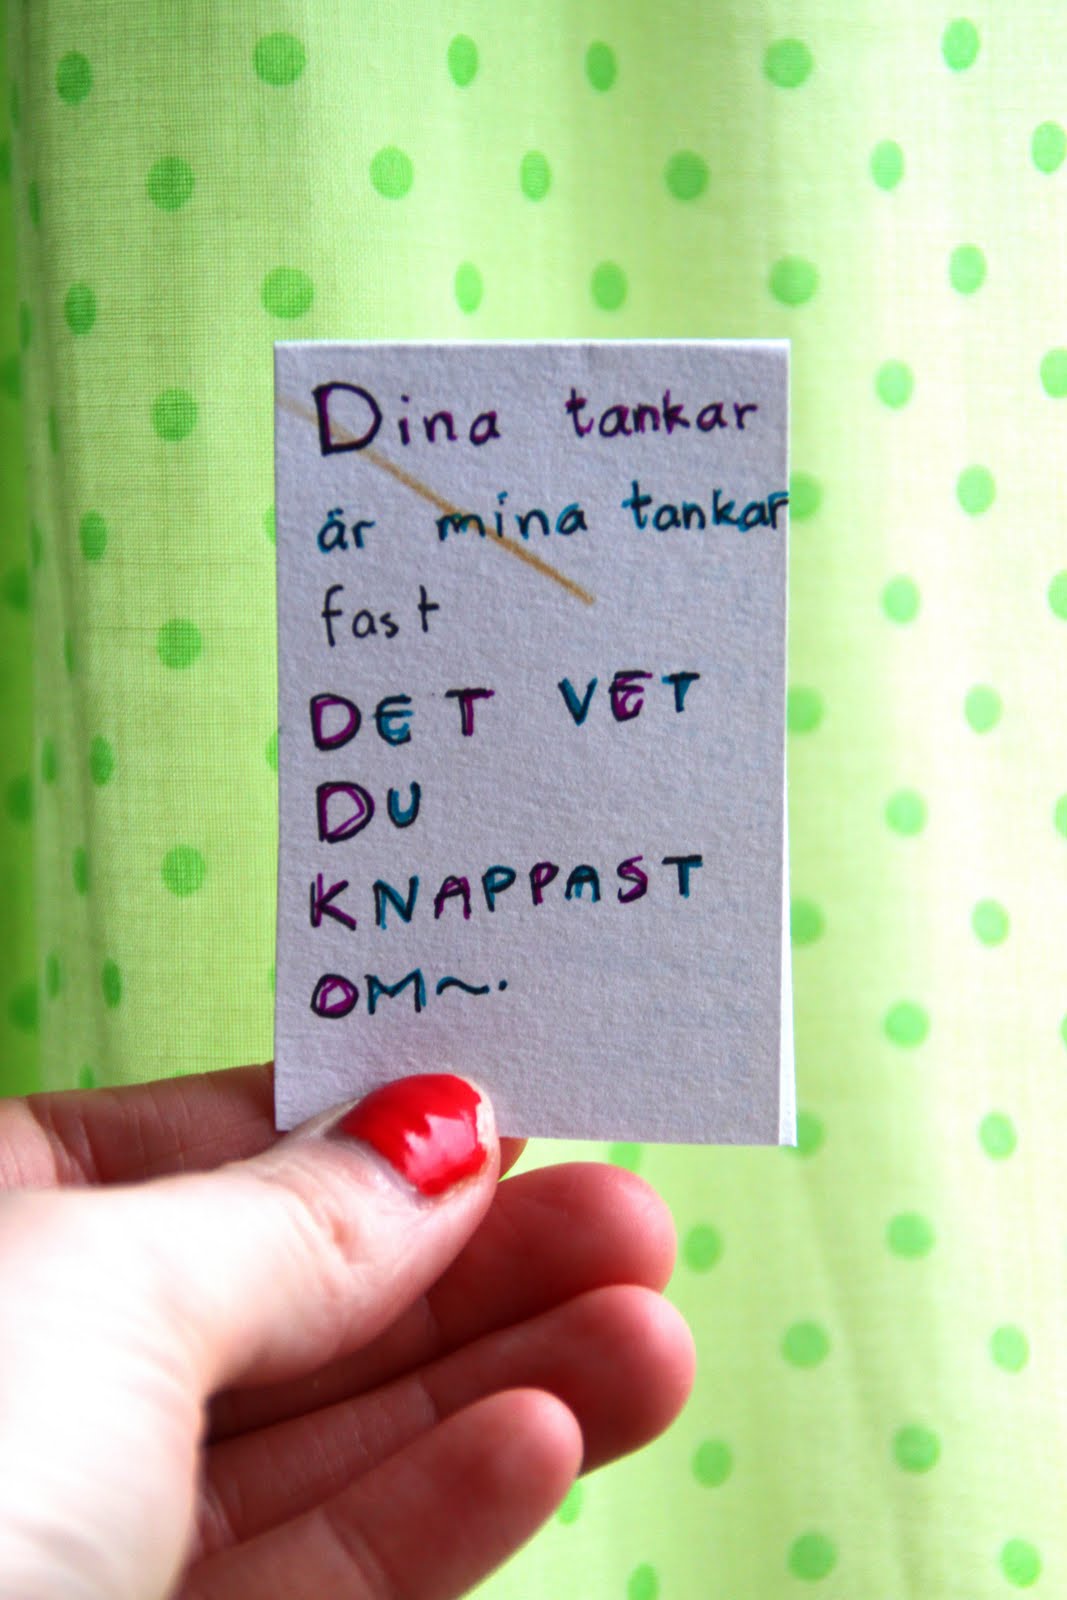 Dina tankar
är mina tankar
fast
DET VET
DU
KNAPPAST
OM~.